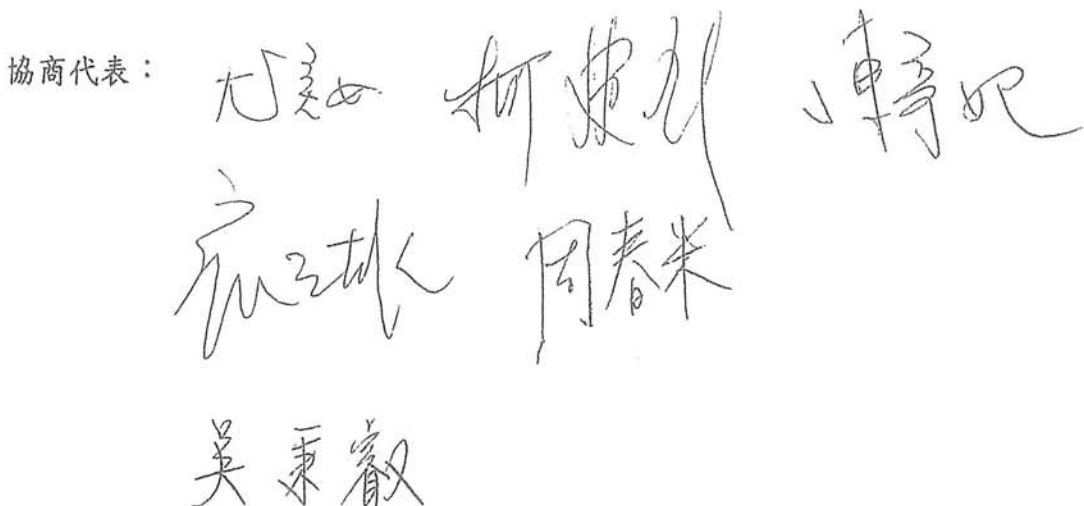 協商代表： 尤美女 柯建銘 陳亭妃
周春米
吳秉叡